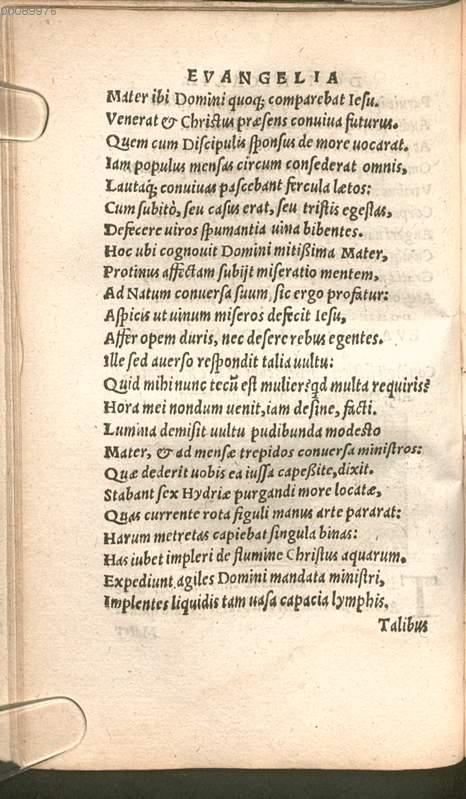 00089976
EVANGELIA
Mater ibi Domini quoq; comparebat Iesu.
Venerat & Christus præsens conuiua futurus.
Quem cum Discipulis sponsus de more uocarat.
Iam populus mensas circum consederat omnis,
Lautaq; conuiuas pascebant fercula lætos:
Cum subitò, seu casus erat, seu tristis egestas,
Defecere uiros spumantia uina bibentes.
Hoc ubi cognouit Domini mitißima Mater,
Protinus affectam subijt miseratio mentem,
Ad Natum conuersa suum sic ergo profatur:
Aspicis ut uinum miseros defecit Iesu,
Affer opem duris, nec desere rebus egentes.
Ille sed auerso respondit talia uultu:
Quid mihi nunc tecū est mulier? qd multa requiris?
Hora mei nondum uenit, iam desine, facti.
Lumina demisit uultu pudibunda modesto
Mater, & ad mensæ trepidos conuersa ministros:
Quæ dederit uobis ea iussa capeßite, dixit.
Stabant sex Hydriæ purgandi more locatæ,
Quas currente rota figuli manus arte pararat:
Harum metretas capiebat singula binas:
Has iubet impleri de flumine Christus aquarum.
Expediunt agiles Domini mandata ministri,
Implentes liquidis tam uasa capacia lymphis.
Talibus